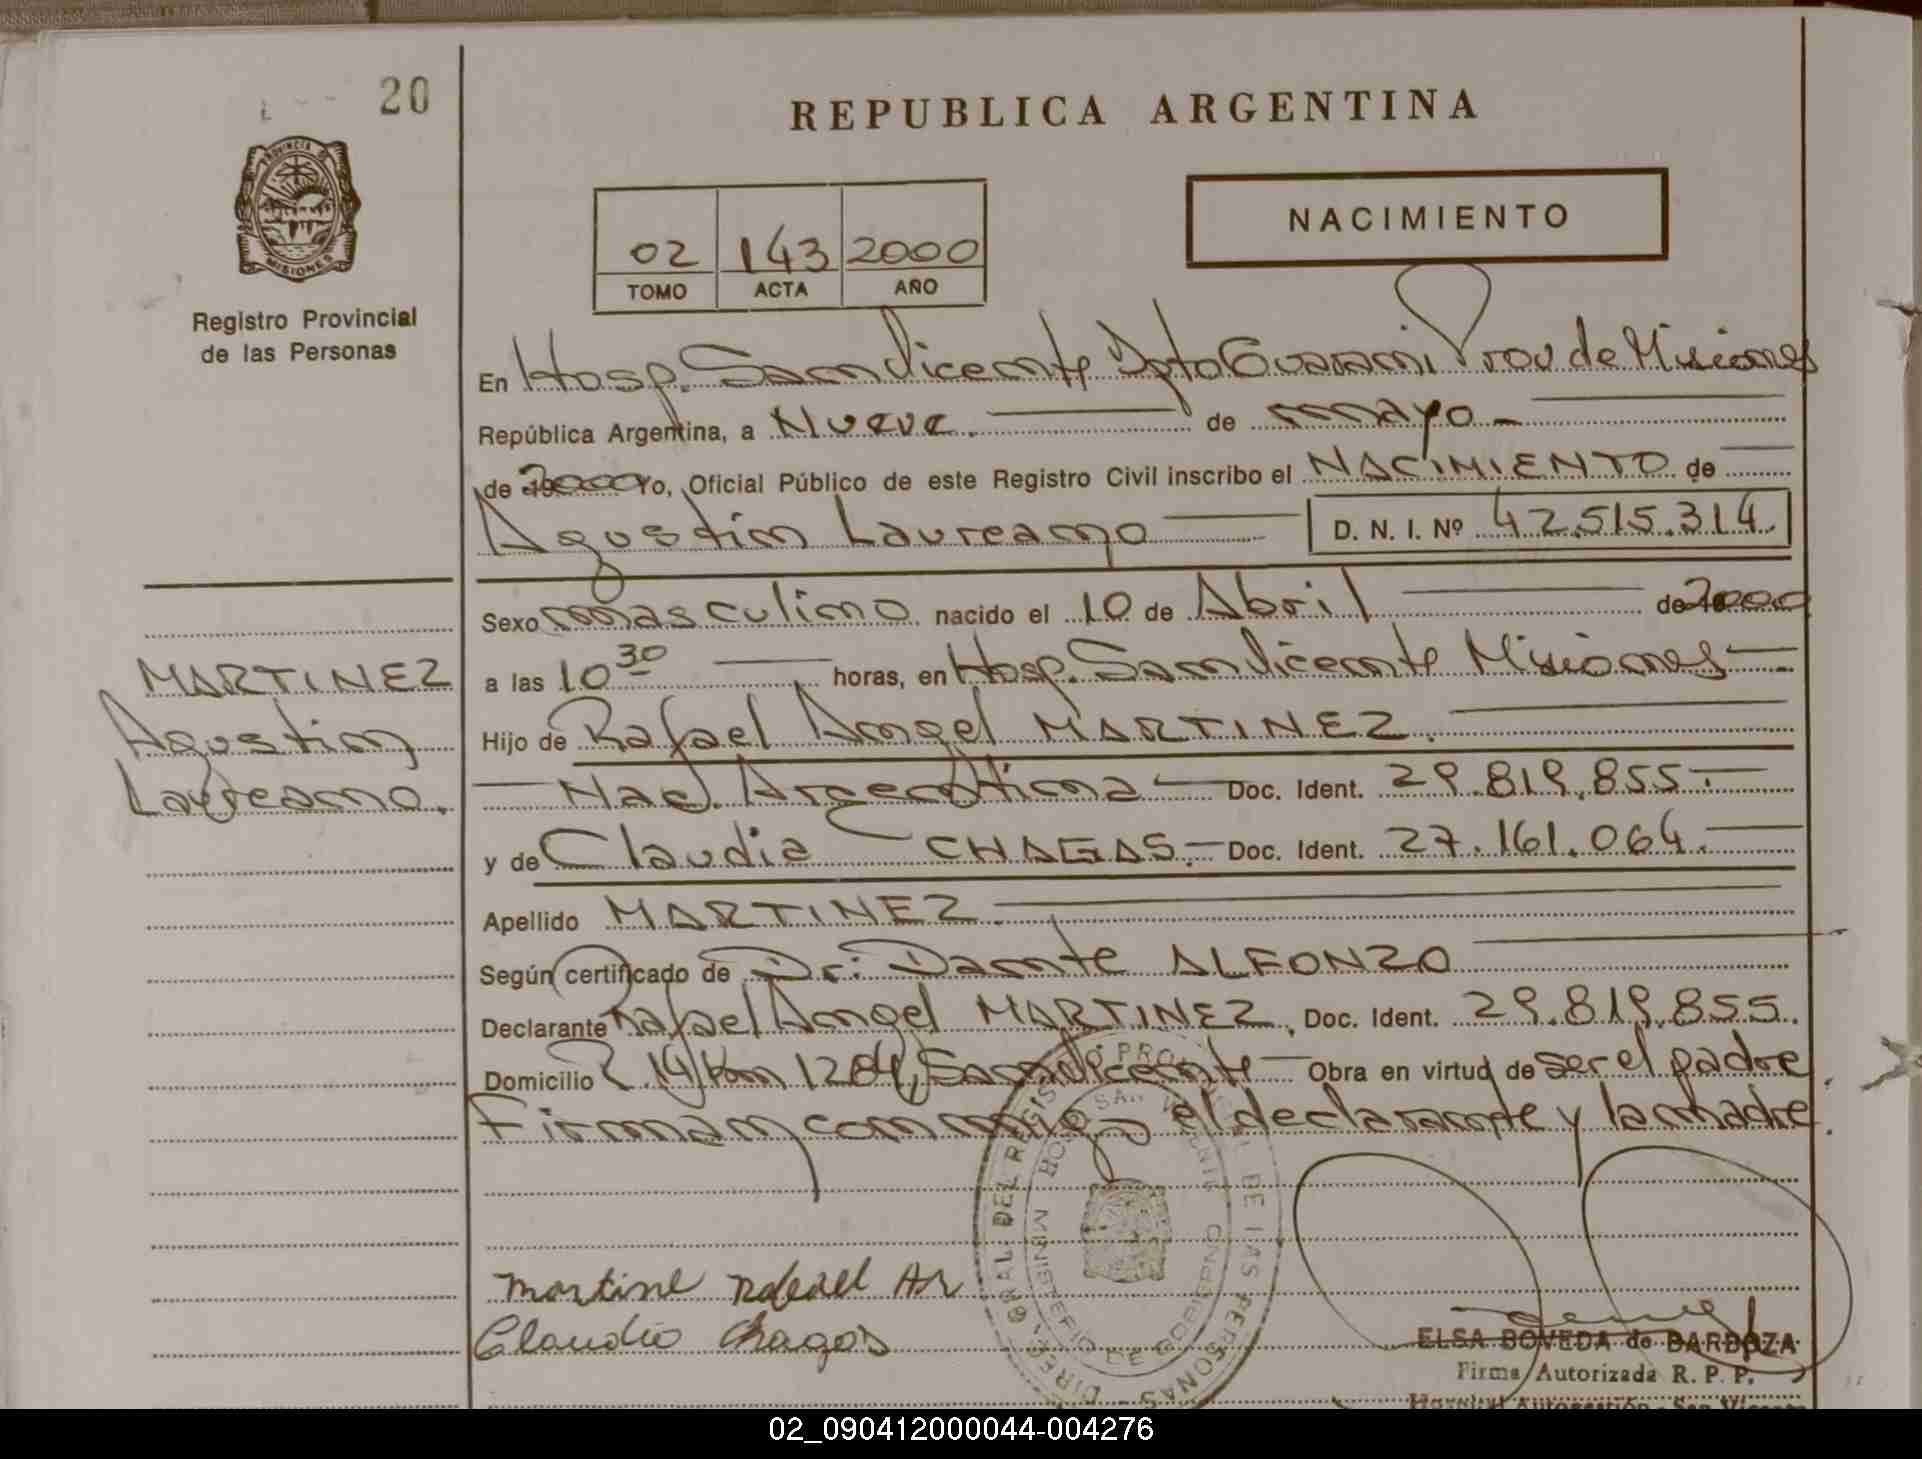 20
REPUBLICA ARGENTINA
PROVINCIA DE
MISIONES
Registro Provincial
de las Personas
02 143 2000
TOMO ACTA AÑO
NACIMIENTO
En Hosp. San Vicente Dpto Guarani Prov de Misiones
República Argentina, a Nueve. de mayo
de 2000 Yo, Oficial Público de este Registro Civil inscribo el NACIMIENTO de
Agustin Laureano D. N. I. Nº 42.515.314.
Sexo masculino nacido el 10 de Abril de 2000
a las 10 30 horas, en Hosp. San Vicente Misiones
Hijo de Rafael Angel MARTINEZ.
Nac. Argentina Doc. Ident. 29.819.855
y de Claudia CHAGAS. Doc. Ident. 27.161.064.
Apellido MARTINEZ.
Según certificado de Dr. Dante ALFONZO
Declarante Rafael Angel MARTINEZ, Doc. Ident. 29.819.855.
Domicilio R. 14 Km 1284, San Vicente Obra en virtud de ser el padre.
Firman conmigo el declarante y la madre.
MARTINEZ
Agustin
Laureano.
Martine Rafael An
Claudia Chagas
MINISTERIO DE GOBIERNO
ELSA BOVEDA de BARBOZA
Firma Autorizada R. P. P.
Hospital Autogestión - San Vicente
02_090412000044-004276